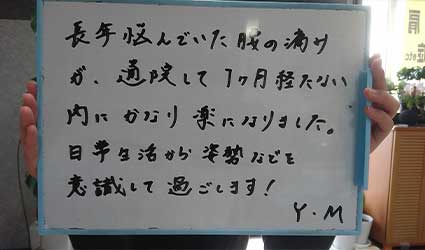 長年悩んでいた腰の痛み
が、通院して1ヶ月経たない
内にかなり楽になりました。
日常生活から姿勢などを
意識して過ごします!
Y.M
肩
症etc